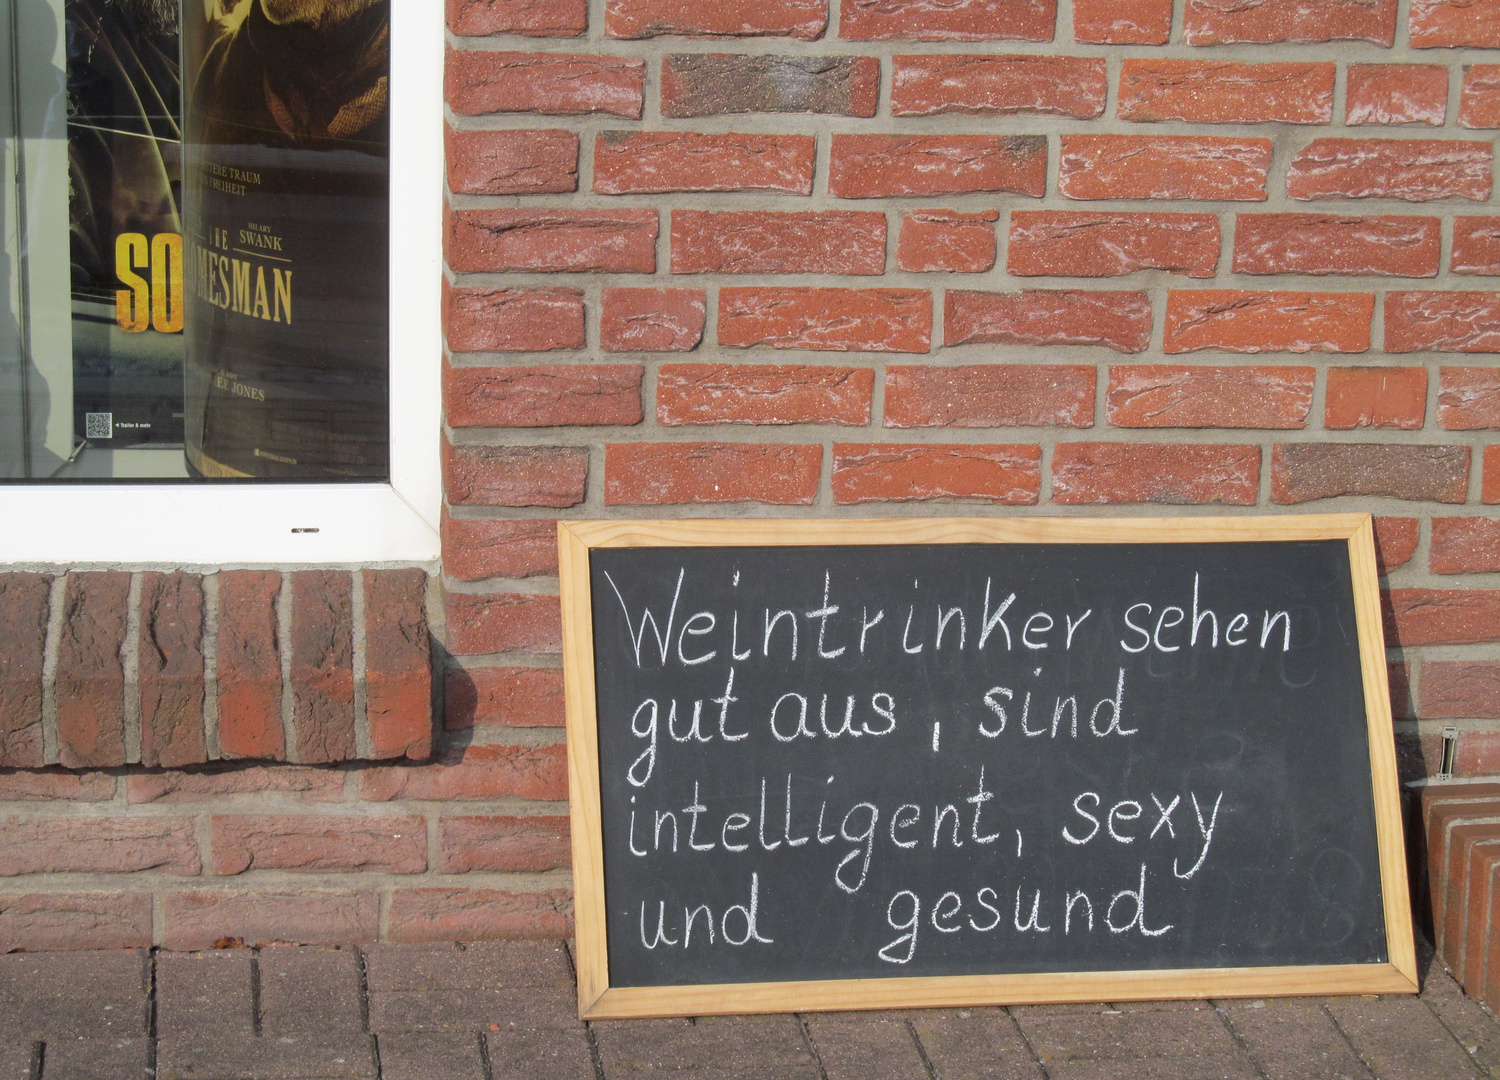 TRAUM
FREIHEIT
HILARY
SWANK
SO
JONES
Trailer & mehr
Weintrinker sehen
gut aus, sind
intelligent, sexy
und gesund